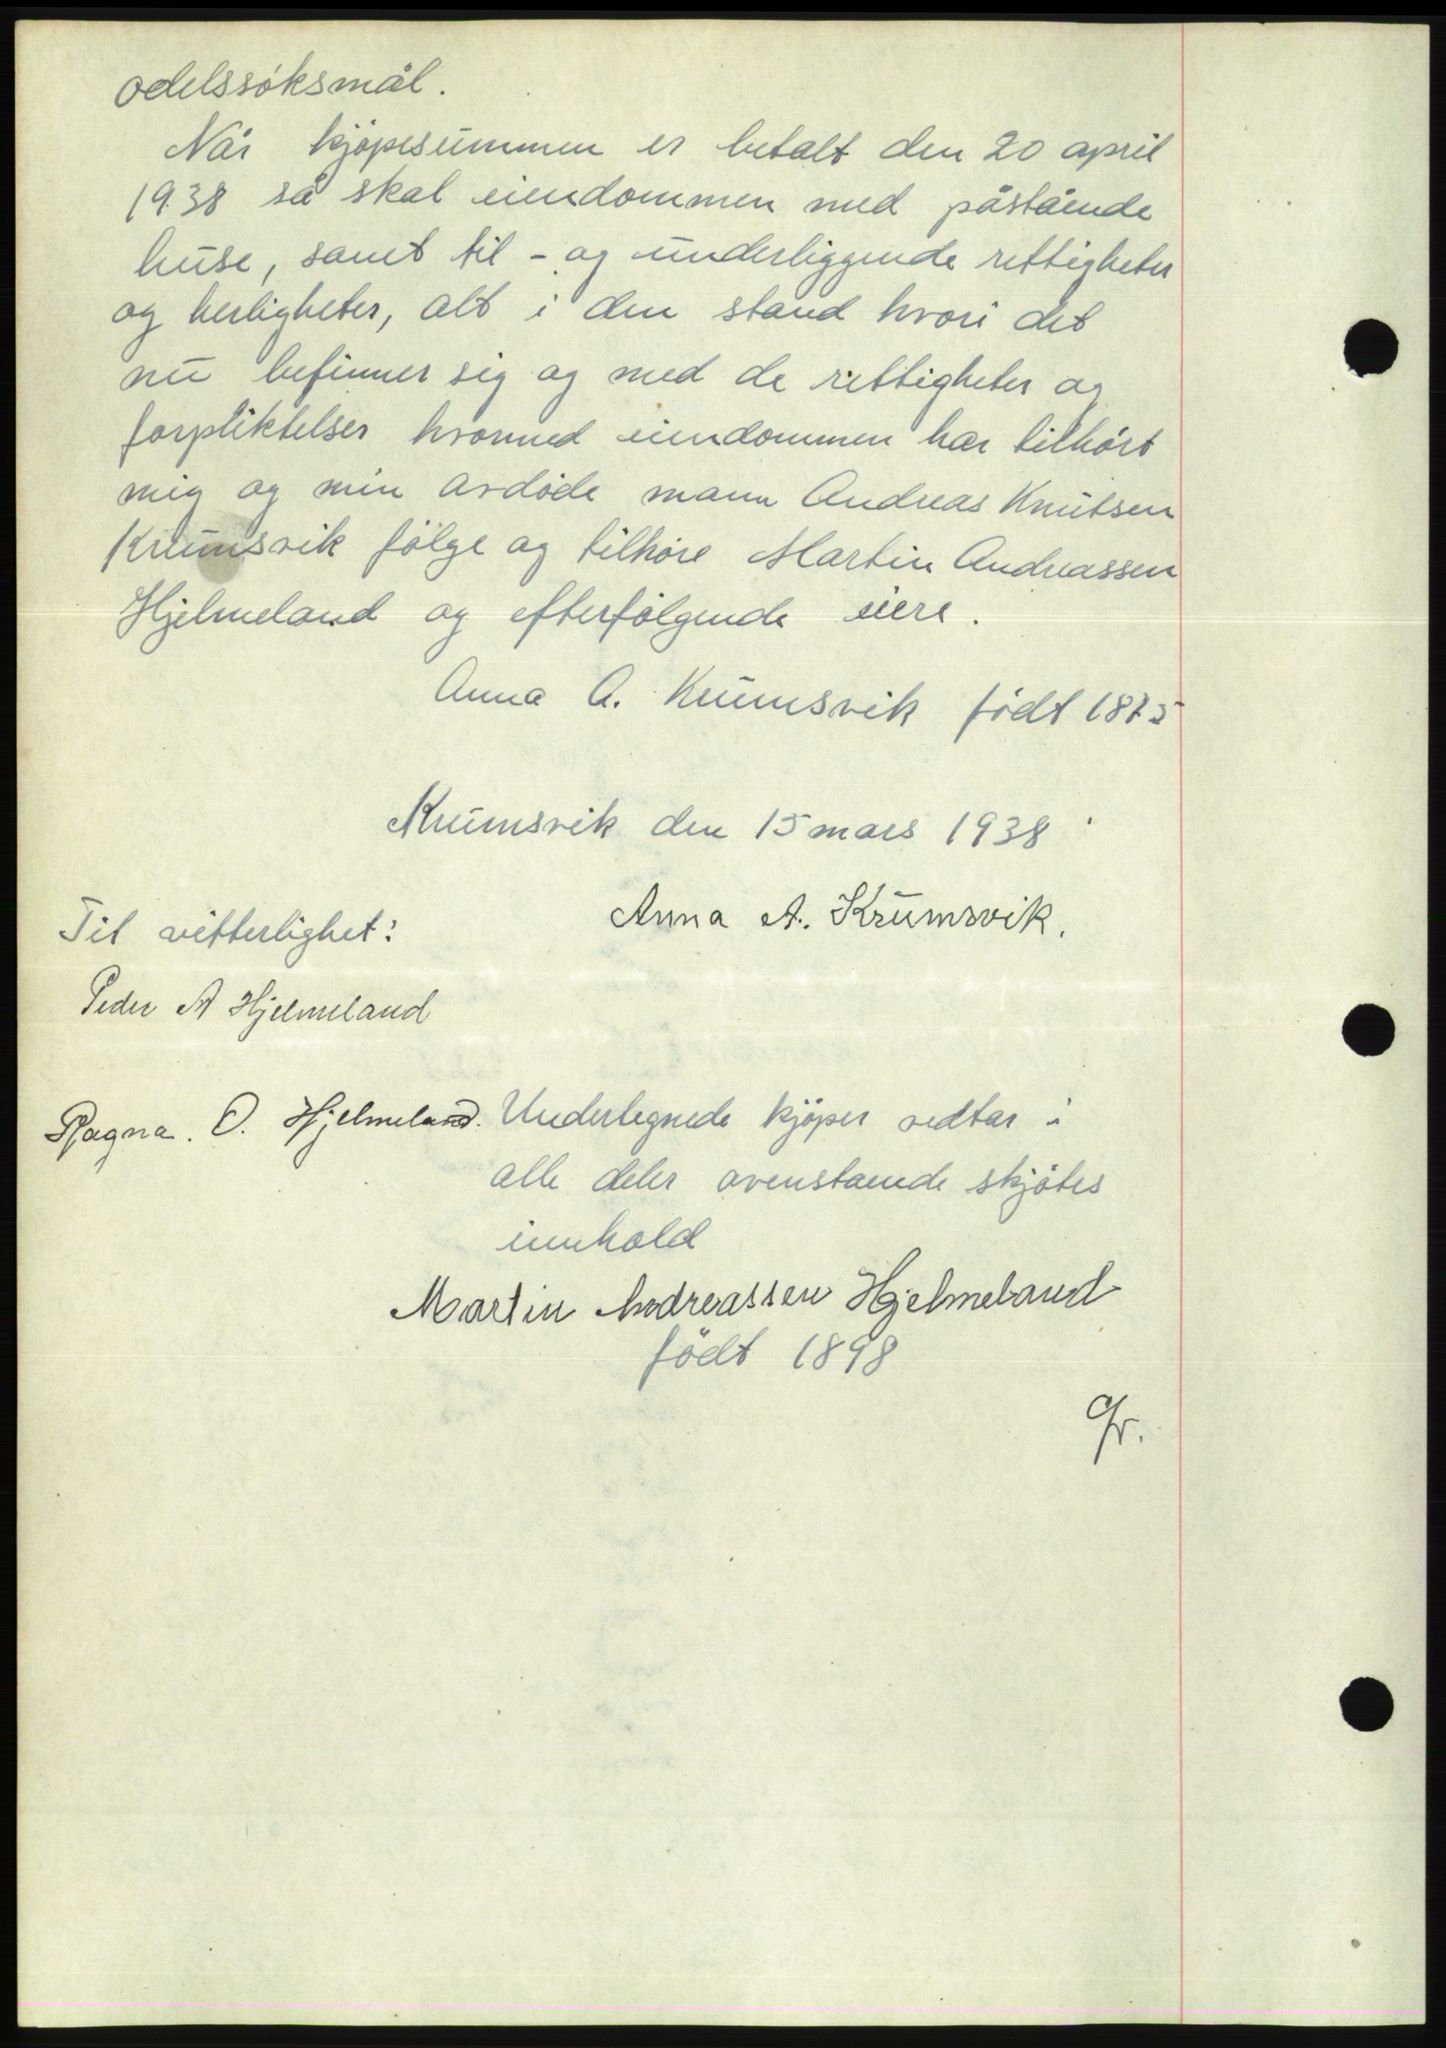 odelssøksmål.
Når kjøpesummen er betalt den 20 april
1938 så skal eiendommen med påstående
huse, samt til - og underliggende rettigheter
og herligheter, alt i den stand hvori det
nu befinner sig og med de rettigheter og
forpliktelser hvormed eiendommen har tilhørt
mig og min avdøde mann Andreas Knutsen
Krumsvik følge og tilhøre Martin Andreassen
Hjelmeland og efterfølgende eiere.
Anna A. Krumsvik født 1875
Krumsvik den 15 mars 1938
Anna A. Krumsvik.
Til vitterlighet:
Peder A Hjelmeland
Ragna. O. Hjelmeland.
Undertegnede kjøper vedtar i
alle deler ovenstaende skjøtes
innhold
Martin Andreassen Hjelmeland
født 1898